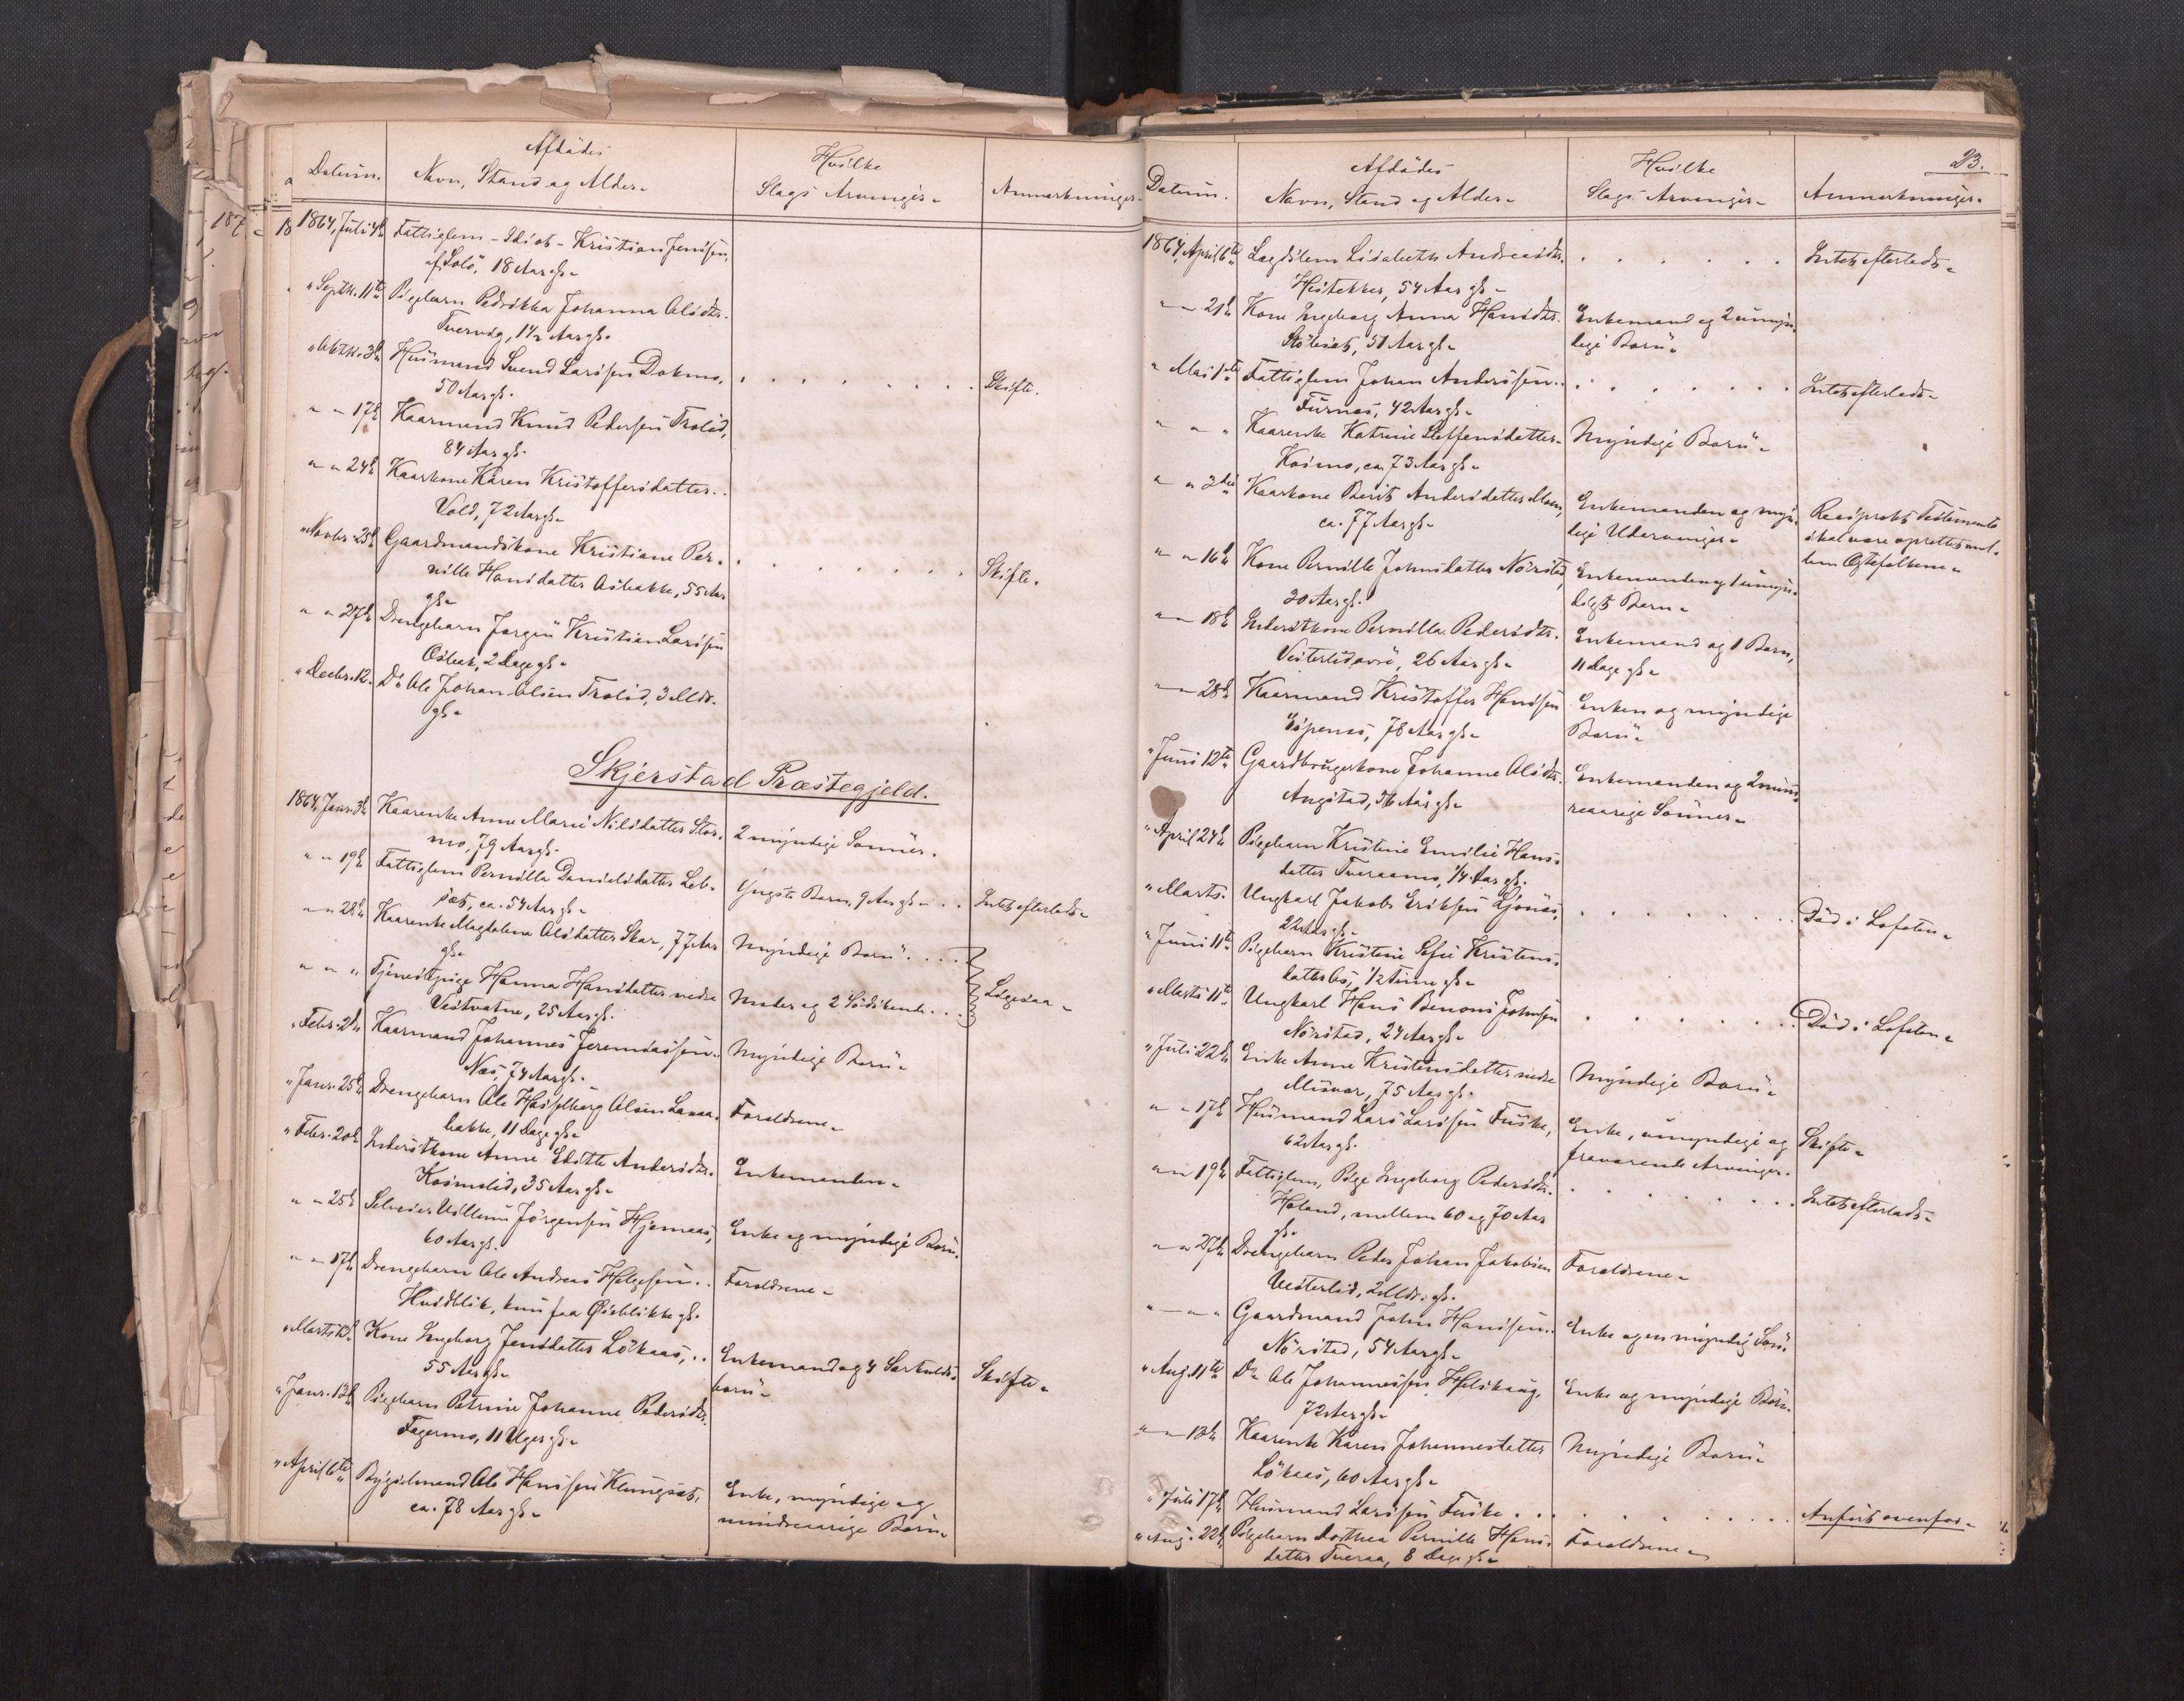 Afdødes
Hvilke
Datum. Navn, Stand og Alder. Slags Arvinger. Anmærkninger.
1864, Juli 4de Fattiglem - Idiot - Kristian Jensen,
af Solö, 18 Aar gl.
" Septbr. 11te Pigebarn Pedrikka Johanna Olsdtr.
Tuervig, 1½ Aar gl.
" Oktbr. 3de Husmand Svend Larssen Dokmo, . . . . . . . Skifte.
50 Aar gl.
" " 17de Kaarmand Knud Pedersen Trolid,
84 Aar gl.
" " 24de Kaarkone Karen Kristoffersdatter
Vold, 72 Aar gl.
" Novbr. 25de Gaardmandskone Kristiane Per- . . . . . . . Skifte.
nille Hansdatter Osbakke, 55 Aar
gl.
" " 27de Drengebarn Jørgen Kristian Larssen
Osbak, 2 Dage gl.
" Decbr. 12. Do Ole Johan Olsen Trolid, 3 Mdr.
gl.
Skjerstad Præstegjeld.
1864, Janr. 3de Kaarenke Anne Marie Nilsdatter Stor- 2 myndige Sønner.
mo, 79 Aar gl.
" " 19de Fattiglem Pernilla Danielsdatter Leb- Yngste Barn, 9 Aar gl. . . Intet efterladt.
sæt, ca. 54 Aar gl.
" " 28de Kaarenke Magdalena Olsdatter Skar, 77 Aar Myndige Børn . . . .
gl.
" " " Tjenestpige Hanna Hansdatter nedre Moder og 2 Sødskende . . . Ligesaa.
Vestvatne, 25 Aar gl.
" Febr. 2den Kaarmand Johannes Jeremiassen Myndige Børn.
Næs, 74 Aar gl.
" Janr. 25de Drengebarn Ole Hasselberg Olsen Lanaa- Forældrene.
bakke, 11 Dage gl.
" Febr. 20de Inderstkone Anne Editte Andersdtr. Enkemanden.
Kosmolid, 35 Aar gl.
" " 25de Selveier Villum Jörgensen Hjemaas, Enke og myndige Børn.
60 Aar gl.
" " 17de Drengebarn Ole Andreas Helgesen Forældrene.
Hvidblik, kun faa Øieblikke gl.
" Marts 13de Kone Ingeborg Jensdatter Lökaas, . . Enkemand og 4 Særkulds- Skifte.
55 Aar gl. børn.
" Janr. 13de Pigebarn Petrine Johanne Pedersdtr.
Fagermo, 11 Uger gl.
" April 6te Bygselmand Ole Hanssen Klungset, Enke, myndige og
ca. 78 Aar gl. mindreaarige Børn.
23.
Afdødes
Hvilke
Datum. Navn, Stand og Alder. Slags Arvinger. Anmærkninger.
1864, April 6te Lægdslem Lisabeth Andreasdtr. . . . . . . Intet efterladt.
Hestekker, 54 Aar gl.
" " 21de Kone Ingeborg Anna Hansdtr. Enkemand og 2 umyn-
Stölset, 31 Aar gl. dige Børn.
" Mai 1ste Fattiglem Johan Anderssen . . . . . . . Intet efterladt.
Furnæs, 42 Aar gl.
" " " Kaarenke Katrine Steffensdatter Myndige Børn.
Kosmo, ca. 73 Aar gl.
" " 3die Kaarkone Berit Andersdatter Moen, Enkemanden og myn- Reciprokt Testamente
ca. 77 Aar gl. dige Udarvinger. skal være oprettet mel-
lem Ægtefolkene.
" " 16de Kone Pernille Johnsdatter Nörstad, Enkemanden og 1 umyn-
30 Aar gl. digt Barn.
" " 18de Inderstkone Pernilla Pedersdtr. Enkemand og 1 Barn,
Vesterlidøvre, 26 Aar gl. 11 Dage gl.
" " 28de Kaarmand Kristoffer Hanssen Enken og myndige
Espenæs, 78 Aar gl. Børn.
" Juni 12te Gaardbrugerkone Johanne Olsdtr. Enkemanden og 2 mind-
Angstad, 56 Aar gl. reaarige Sønner.
" April 24de Pigebarn Kristine Emilie Hans-
datter Tveraamo, ¼ Aar gl.
" Marts. Ungkarl Jakob Eriksen Ljönæs, . . . . . . . Död i Lofoten.
22 Aar gl.
" Juni 11te Pigebarn Kristine Sofie Kristens-
datter Os, ½ Time gl.
" Marts 11te Ungkarl Hans Benoni Johnsen . . . . . . . Död i Lofoten.
Nörstad, 24 Aar gl.
" Juli 22de Enke Anne Kristensdatter nedre Myndige Børn.
Misvær, 75 Aar gl.
" " 17de Husmand Lars Larssen Fuske, Enke, umyndige og Skifte.
62 Aar gl. fraværende Arvinger.
" " 19de Fattiglem, Pige Ingeborg Pedersdtr. . . . . . . Intet efterladt.
Høland, mellem 60 og 70 Aar
gl.
" " 27de Drengebarn Peder Johan Jakobsen Forældrene.
Vesterlid, 2 Mdr. gl.
" " " Gaardmand John Hanssen Enke og en myndig Søn.
Nörstad, 54 Aar gl.
" Aug. 11te Do Ole Johannessen Helskaug, Enke og myndige Børn.
72 Aar gl.
" " 13de Kaarenke Karen Johannesdatter Myndige Børn.
Lökaas, 60 Aar gl.
" Juli 17de Husmand Larssen Fuske . . . . . . . Anført ovenfor.
" Aug. 22de Pigebarn Dorthea Pernille Hans- Forældrene.
datter Tveraa, 8 Dage gl.